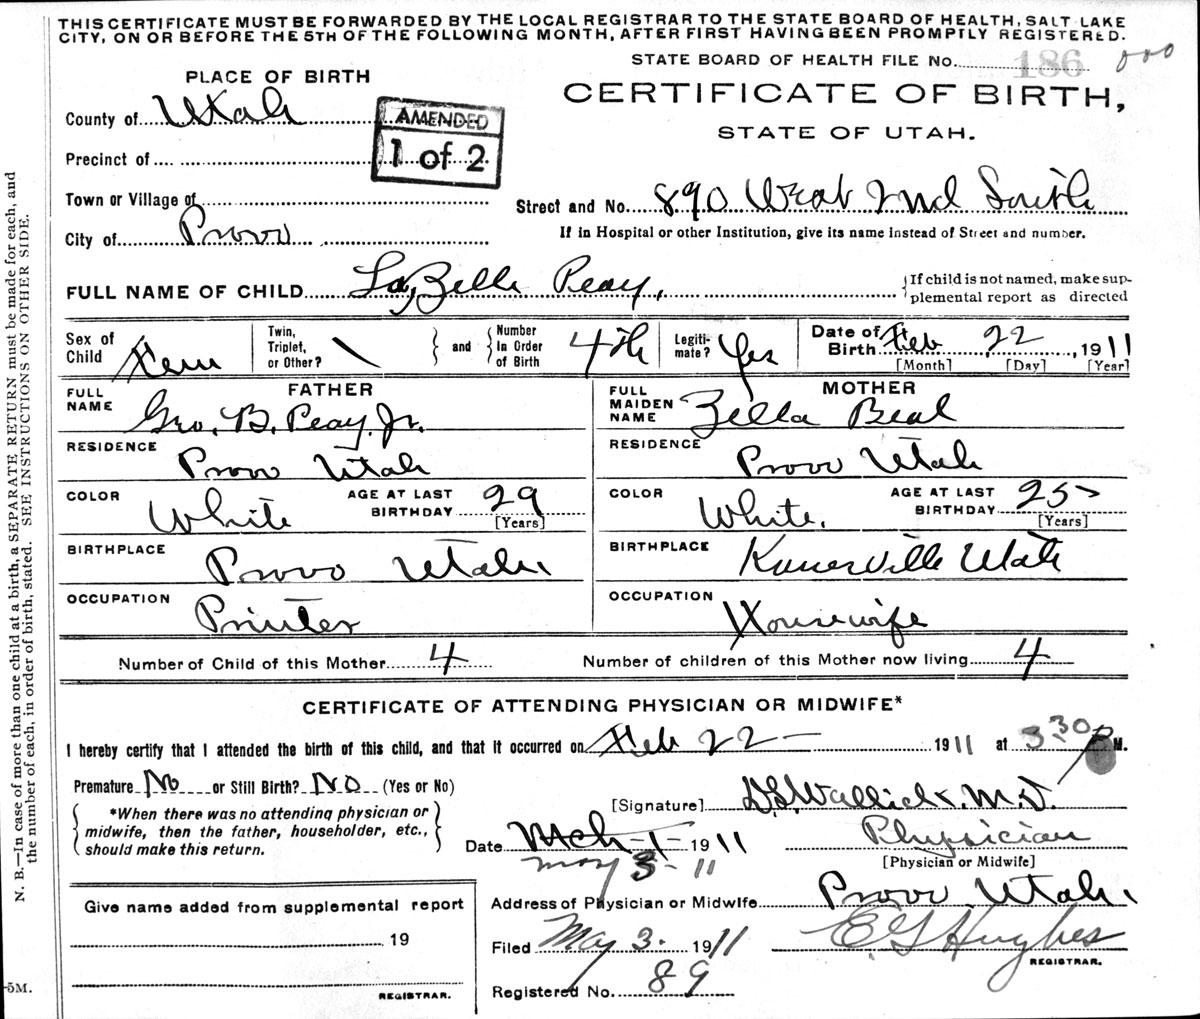 THIS CERTIFICATE MUST BE FORWARDED BY THE LOCAL REGISTRAR TO THE STATE BOARD OF HEALTH, SALT LAKE
CITY, ON OR BEFORE THE 5TH OF THE FOLLOWING MONTH, AFTER FIRST HAVING BEEN PROMPTLY REGISTERED.
STATE BOARD OF HEALTH FILE No. 186 000
PLACE OF BIRTH
CERTIFICATE OF BIRTH,
STATE OF UTAH.
County of Utah
AMENDED
1 of 2
Precinct of
Town or Village of
Street and No. 890 West 2nd South
City of Provo
If in Hospital or other Institution, give its name instead of Street and number.
FULL NAME OF CHILD LaBelle Peay,
If child is not named, make sup-
plemental report as directed
Sex of Child Fem
Twin, Triplet, or Other? \
and
Number In Order of Birth 4th
Legiti-mate? Yes
Date of Birth Feb 22, 1911
[Month] [Day] [Year]
FATHER
FULL NAME Geo. B. Peay. Jr.
MOTHER
FULL MAIDEN NAME Zella Beal
RESIDENCE Provo Utah
RESIDENCE Provo Utah
COLOR White
AGE AT LAST BIRTHDAY 29
[Years]
COLOR White.
AGE AT LAST BIRTHDAY 25
[Years]
BIRTHPLACE Provo Utah
BIRTHPLACE Utah
OCCUPATION Printer
OCCUPATION Housewife
Number of Child of this Mother 4
Number of children of this Mother now living 4
CERTIFICATE OF ATTENDING PHYSICIAN OR MIDWIFE*
I hereby certify that I attended the birth of this child, and that it occurred on Feb 22 - 1911 at 3 30 P M.
Premature No or Still Birth? No (Yes or No)
*When there was no attending physician or
midwife, then the father, householder, etc.,
should make this return.
[Signature] Wallick. M.D.
Date Mch - 1 - 1911
May 3 - 11
Physician
[Physician or Midwife]
Give name added from supplemental report
19
REGISTRAR.
Address of Physician or Midwife Provo Utah.
Filed May 3. 1911
E G Hughes
REGISTRAR.
Registered No. 89
N. B.—In case of more than one child at a birth, a SEPARATE RETURN must be made for each, and
the number of each, in order of birth, stated. SEE INSTRUCTIONS ON OTHER SIDE.
-5M.